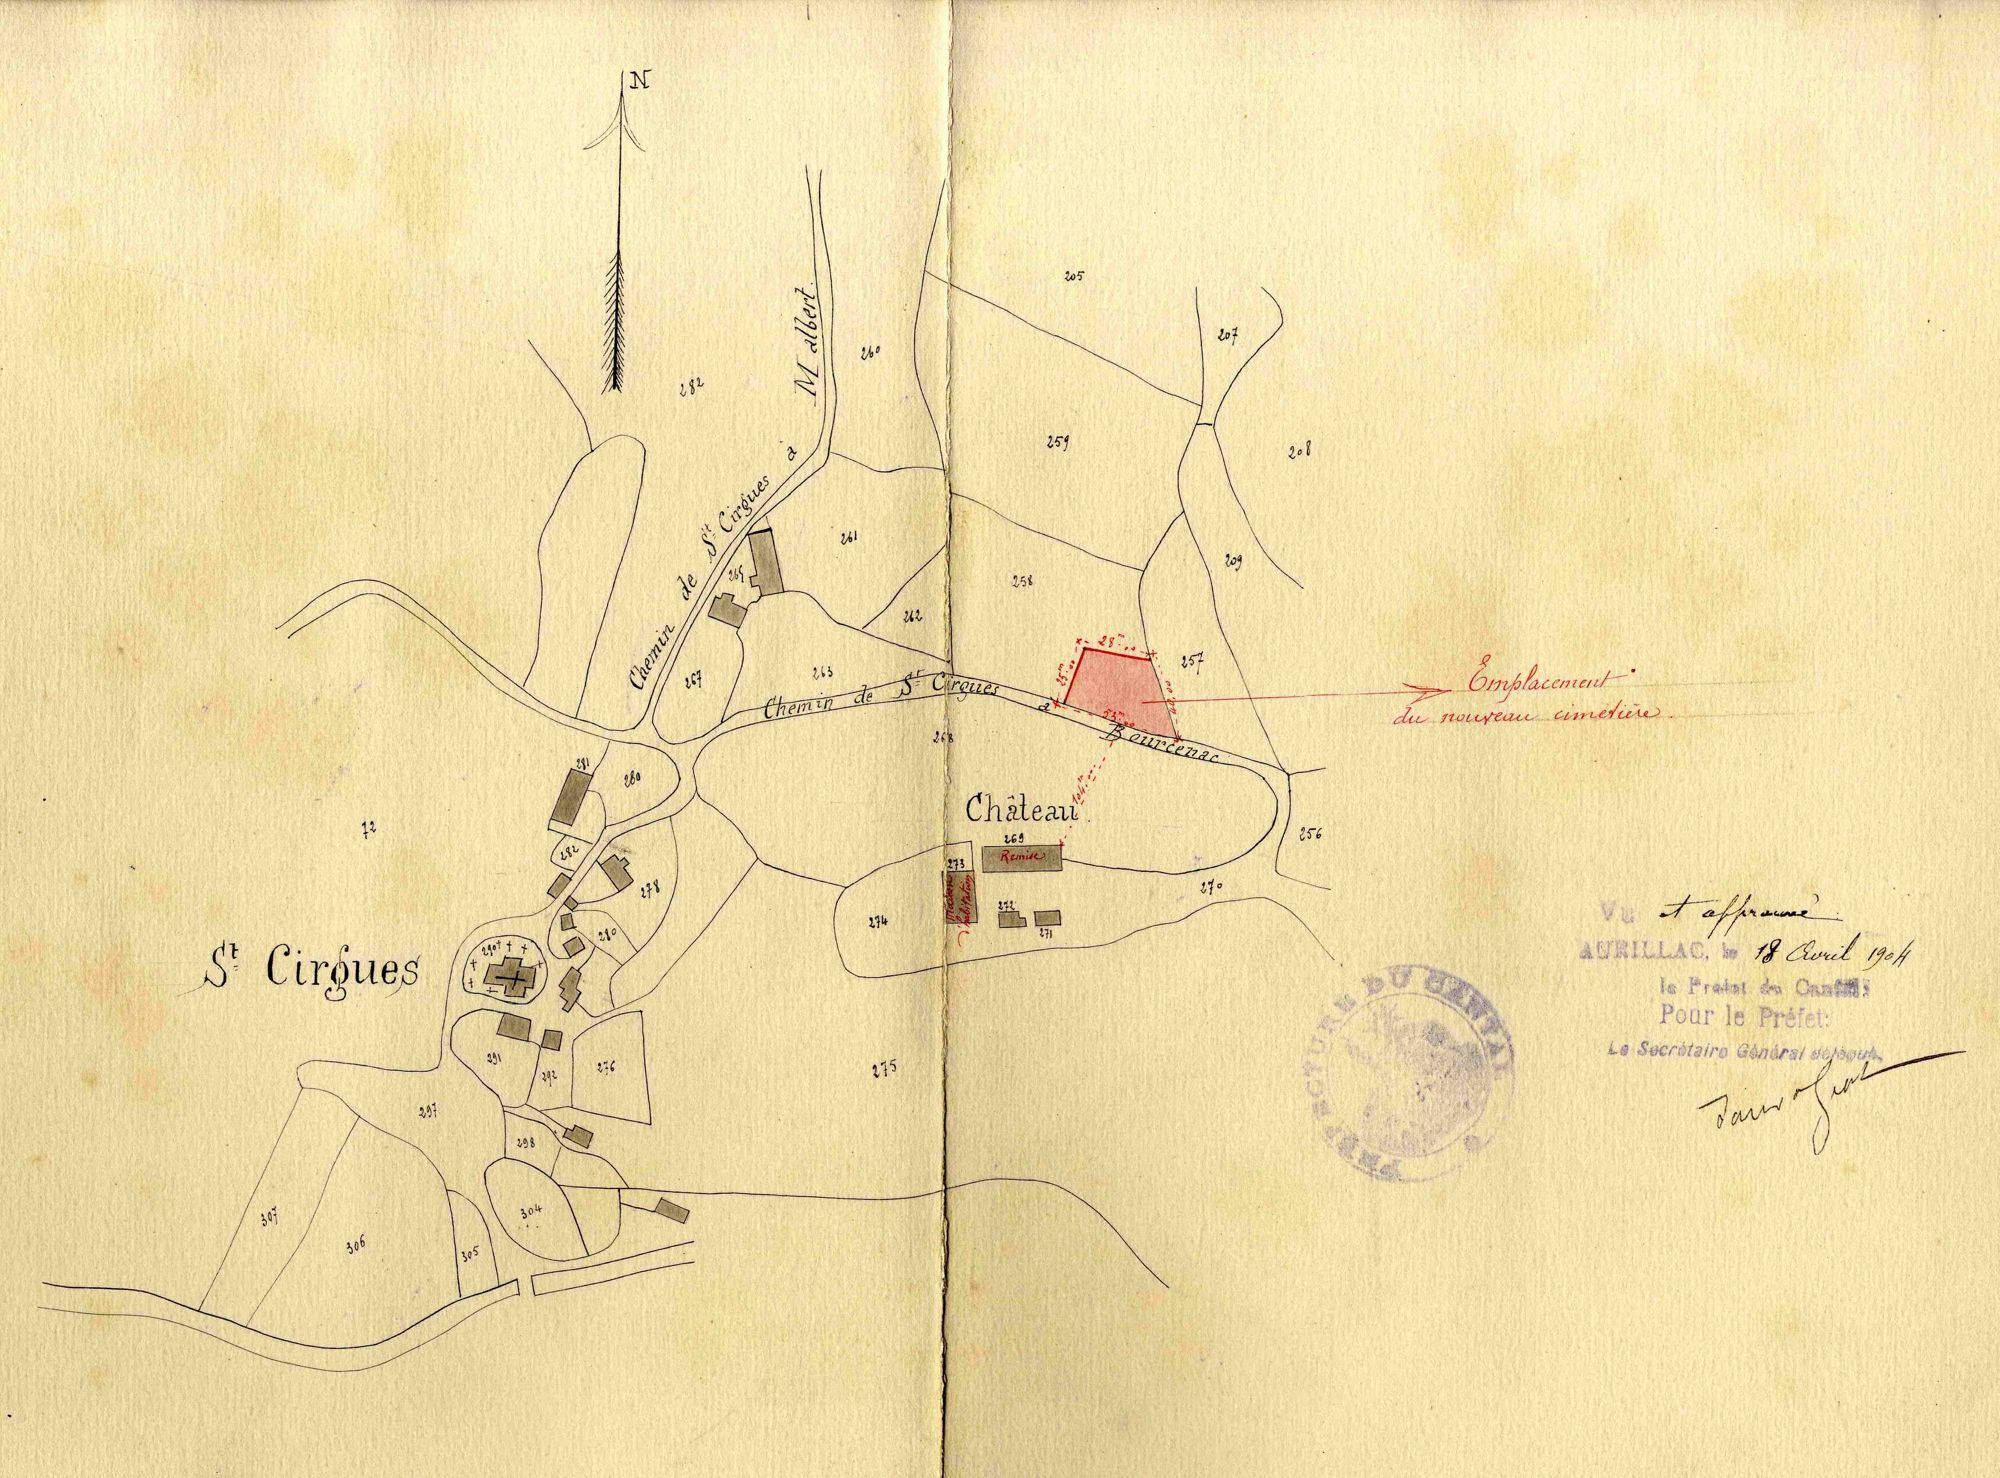 N
205
207
260
282
Chemin de St Cirgues à Malbert
259
208
261
209
265
258
262
28m.00
257
25m.00
263
267
Chemin de St Cirgues à Bourcenac
53m.00
Emplacement
du nouveau cimetière.
268
281
280
104m.00
Château
72
269
Remise
256
282
273
278
270
Maison
d'habitation
272
271
274
280
290
St Cirgues
291
292
276
275
297
298
304
307
306
305
Vu et approuvé
AURILLAC, le 18 Avril 1904
le Préfet du Cantal:
Pour le Préfet:
Le Secrétaire Général délégué,
PRÉFECTURE DU CANTAL